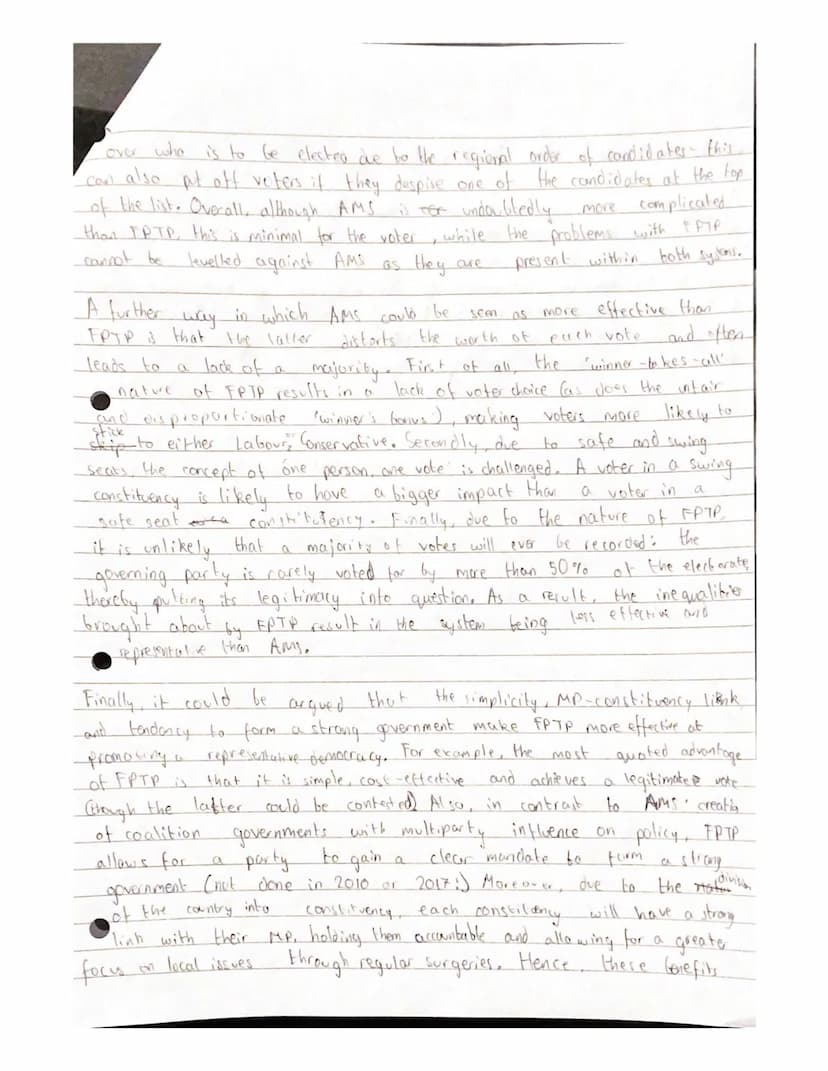 over who is to be elected due to the regional order of candidates - this
can also put off voters if they despise one of the candidates at the top
of the list. Overall, although AMS is undoubtedly more complicated
than FPTP, this is minimal for the voter, while the problems with FPTP
cannot be levelled against AMS as they are present within both systems.
A further way in which AMS could be seen as more effective than
FPTP is that the latter distorts the worth of each vote and often
leads to a lack of a majority. First of all, the 'winner-takes-all'
nature of FPTP results in a lack of voter choice (as does the unfair
and disproportionate 'winner's bonus'), making voters more likely to
stick
skip to either Labour or Conservative. Secondly, due to safe and swing
seats, the concept of 'one person, one vote' is challenged. A voter in a swing
constituency is likely to have a bigger impact than a voter in a
safe seat constitutency. Finally, due to the nature of FPTP,
it is unlikely that a majority of votes will ever be recorded: the
governing party is rarely voted for by more than 50% of the electorate,
thereby putting its legitimacy into question. As a result, the inequalities
brought about by FPTP result in the system being less effective and
representative than AMS.
Finally, it could be argued that the simplicity, MP-constituency link
and tendency to form a strong government make FPTP more effective at
promoting a representative democracy. For example, the most quoted advantage
of FPTP is that it is simple, cost-effective and achieves a legitimate vote
(though the latter could be contested). Also, in contrast to AMS' creating
of coalition governments with multiparty influence on policy, FPTP
allows for a party to gain a clear mandate to form a strong
government (not done in 2010 or 2017!) Moreover, due to the division
of the country into constituency, each constituency will have a strong
link with their MP, holding them accountable and allowing for a greater
focus on local issues through regular surgeries. Hence, these benefits